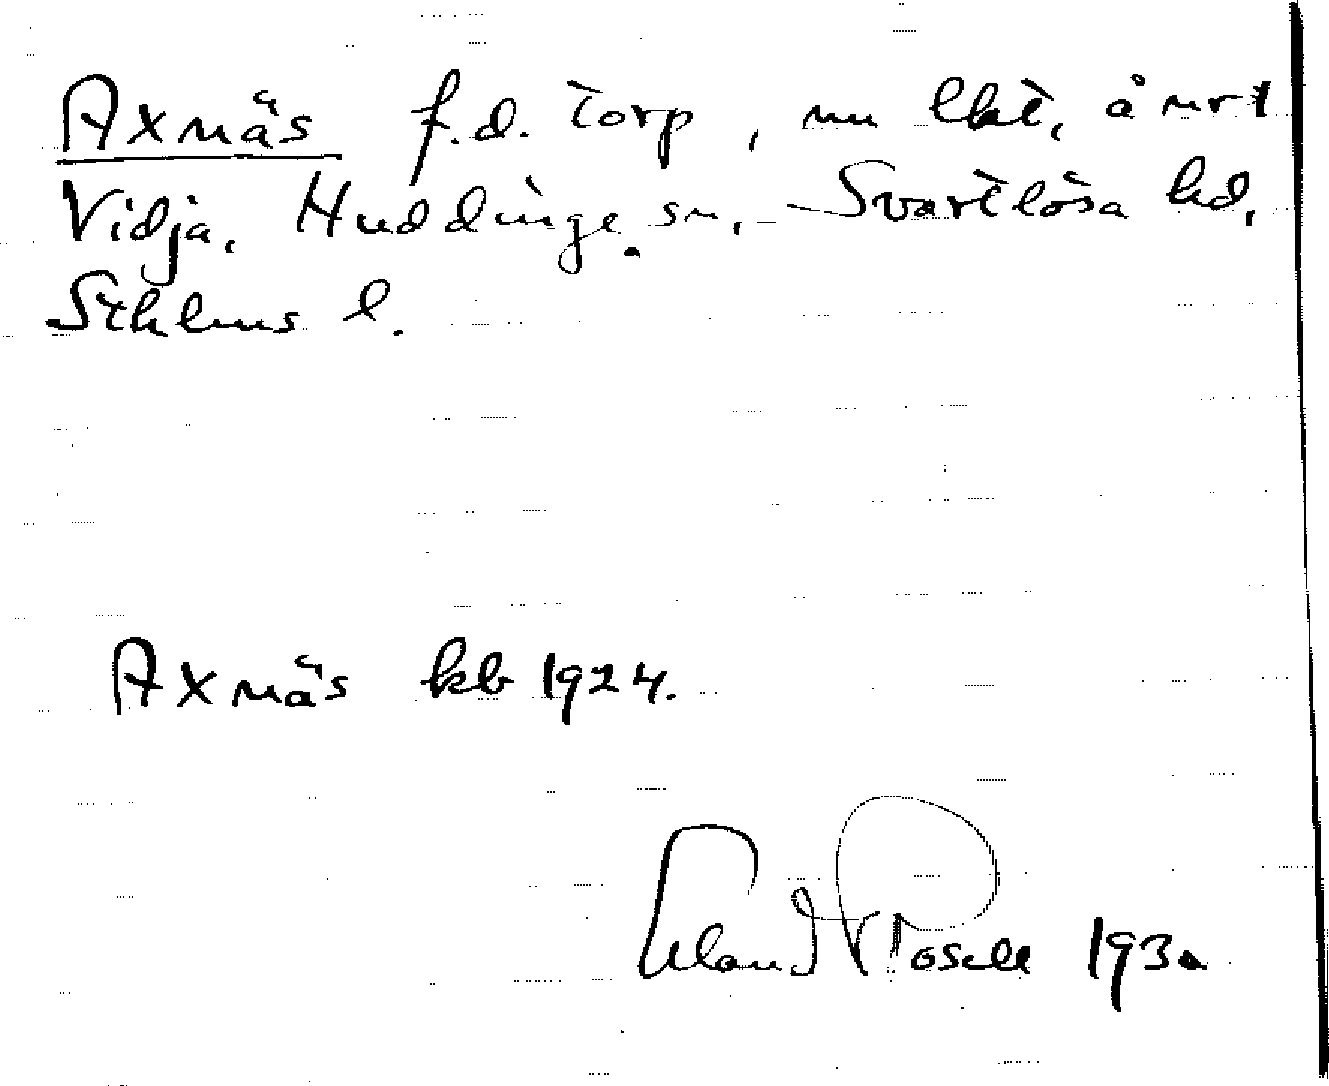 Axnäs f.d. torp, nu lht, å mrt
Vidja, Huddinge sn, Svartlösa hd,
Sthlms l.
Axnäs kb 1924.
Erland Rosell 193